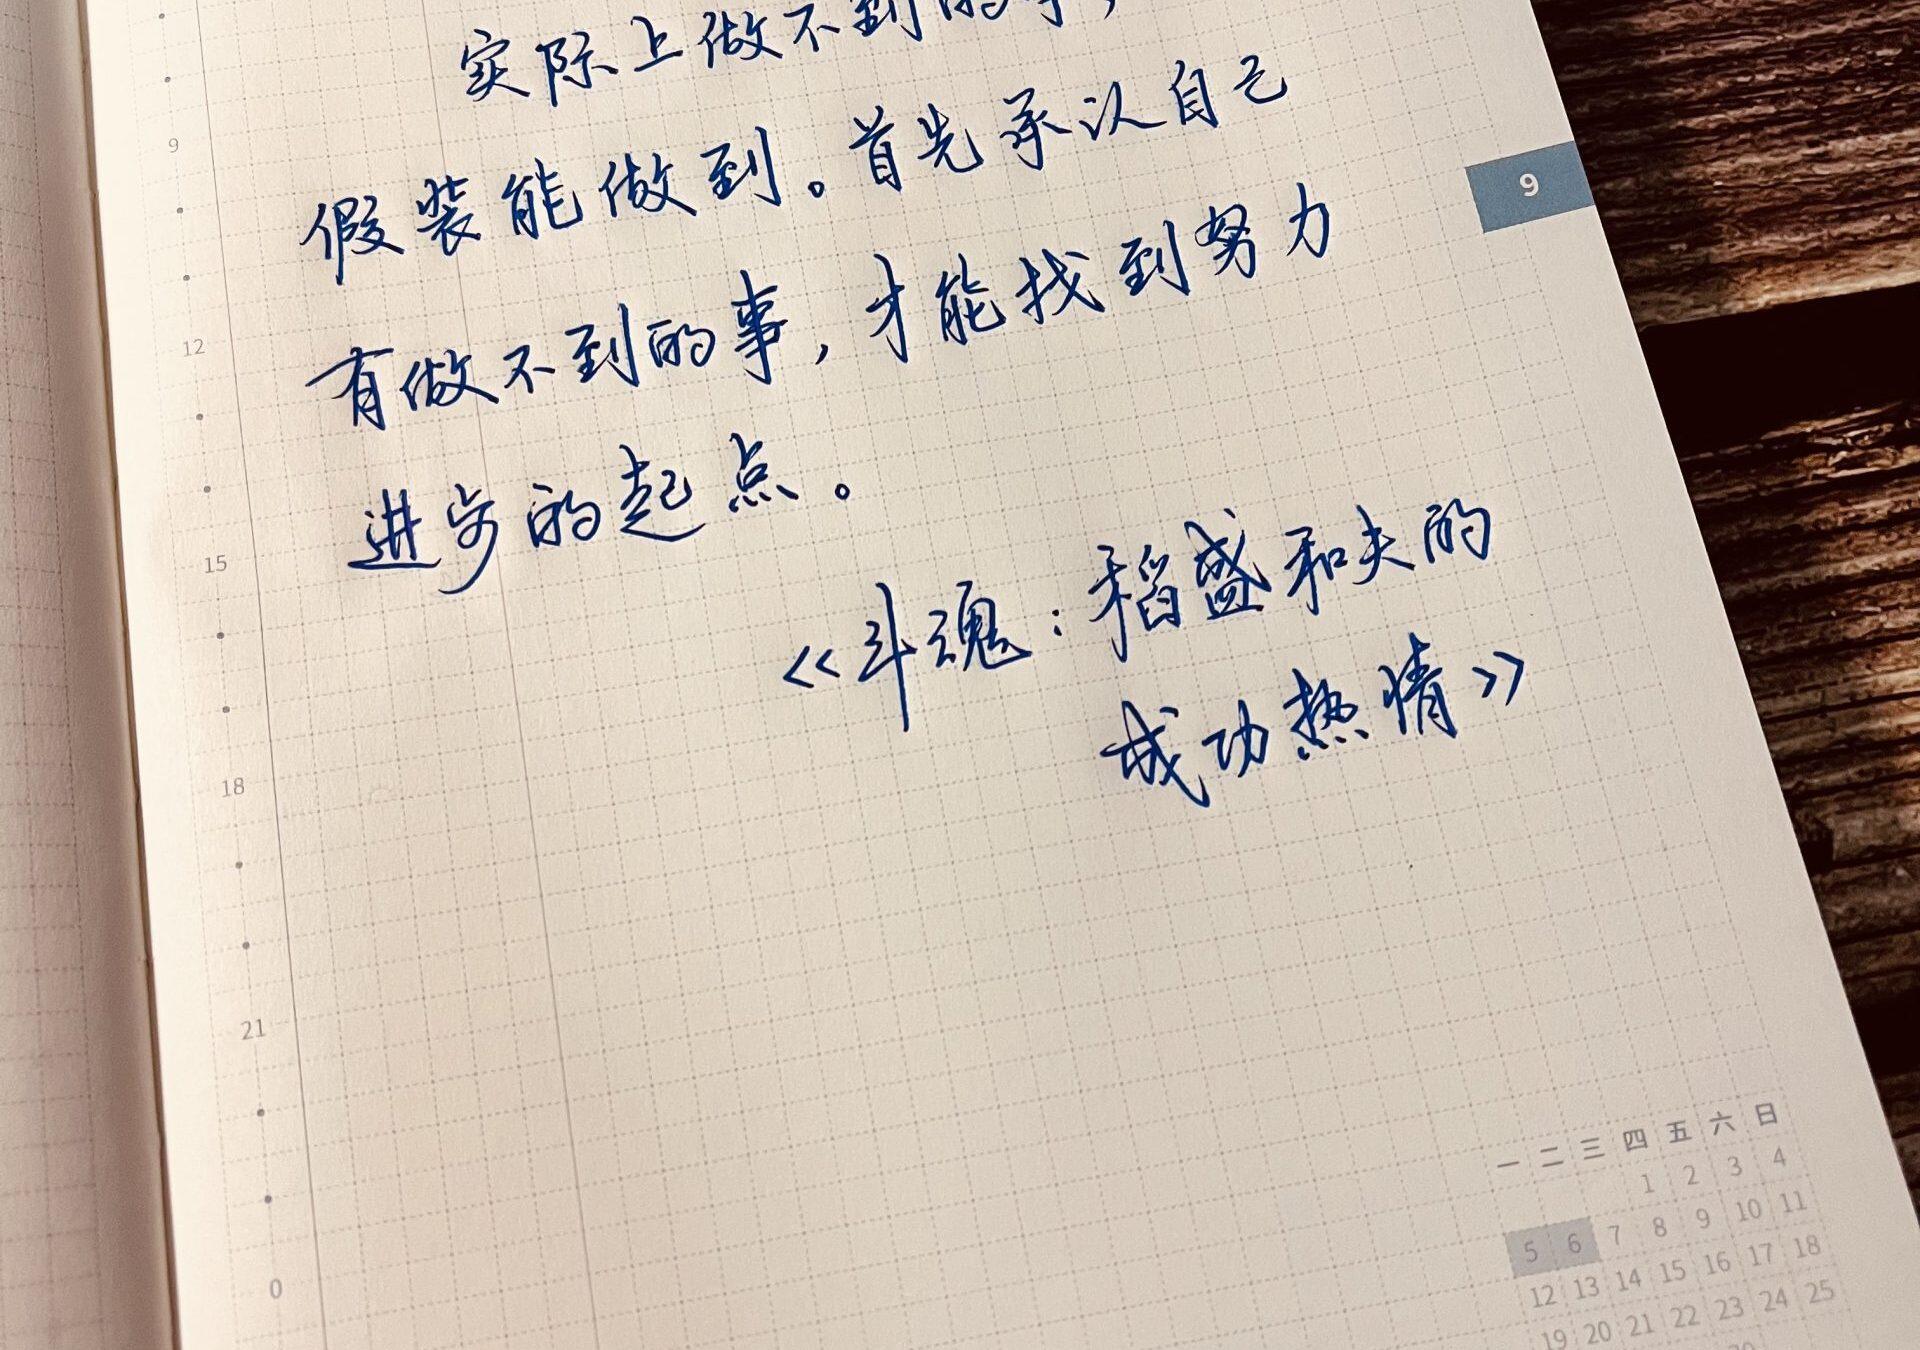 实际上做不到的事，
假装能做到。首先承认自己
有做不到的事，才能找到努力
进步的起点。
《斗魂：稻盛和夫的
成功热情》
9
9
12
15
18
21
0
一 二 三 四 五 六 日
1 2 3 4
5 6 7 8 9 10 11
12 13 14 15 16 17 18
19 20 21 22 23 24 25